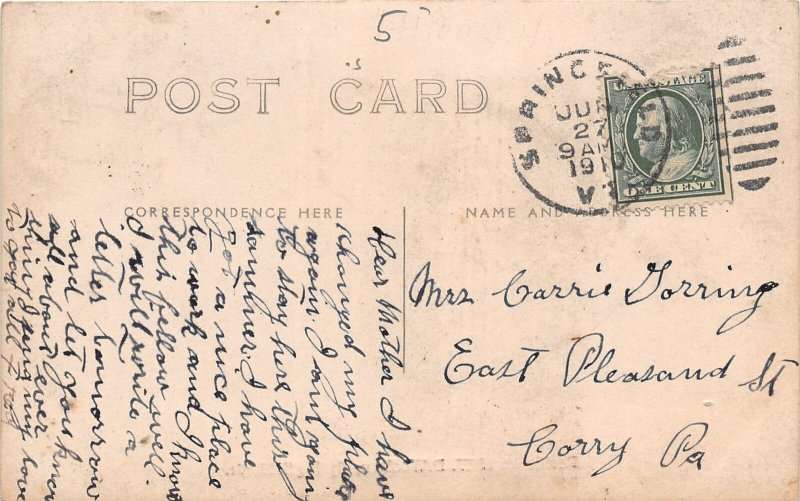 5
POST CARD
SPRINGFIELD
JUN
27
9 AM
1910
U.S. POSTAGE
ONE CENT
CORRESPONDENCE HERE
NAME AND ADDRESS HERE
Dear Mother I have
changed my place
again I am going
to stay here this
summer. I have
got a nice place
to work and I know
this fellow well.
I will write a
letter tomorrow
and let you know
all about ever
thing I send my love
to you all
Mrs Carrie Gorring
East Pleasand St
Corry Pa